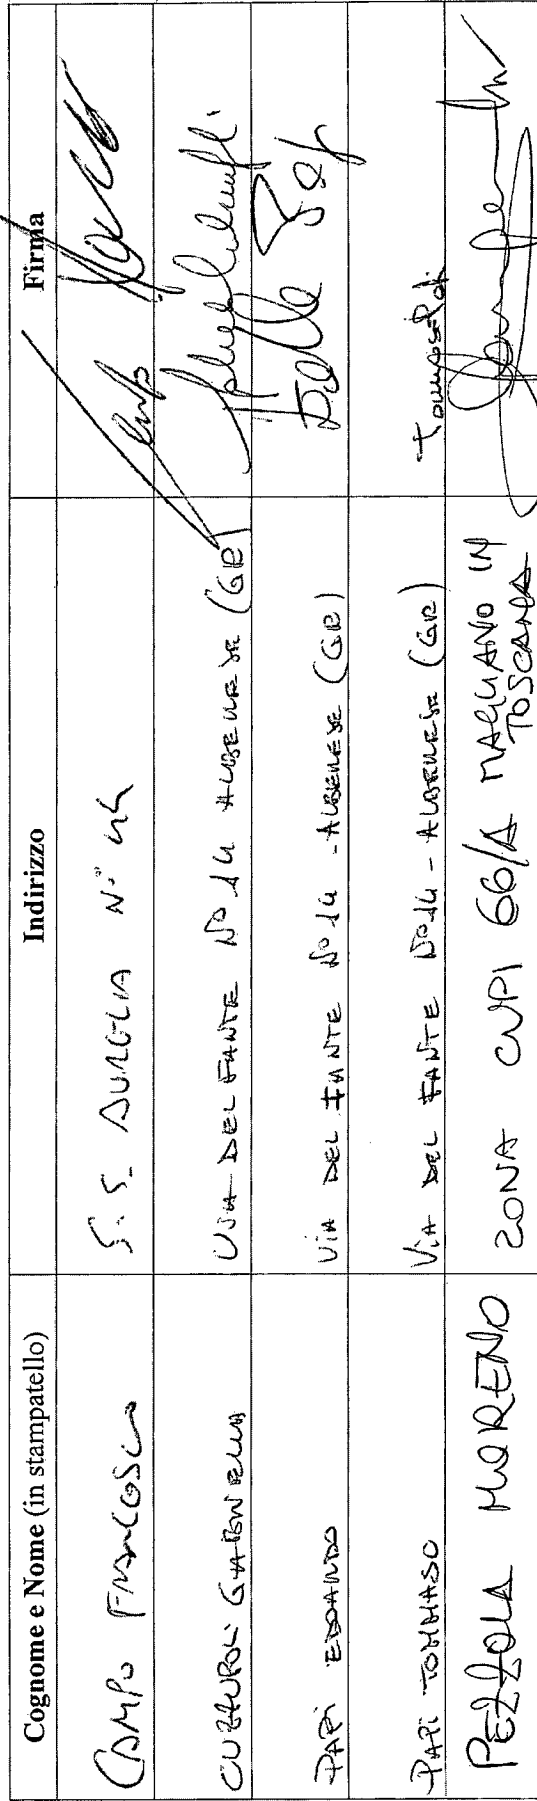 Cognome e Nome (in stampatello) Indirizzo Firma
CAMPO FRANCESCO S.S. AURELIA N°
GABRIELLA VIA DEL FANTE N° 14 ALBERESE (GR)
PAPI EDOARDO VIA DEL FANTE N° 14 - ALBERESE (GR)
PAPI TOMMASO VIA DEL FANTE N° 14 - ALBERESE (GR) Tommaso Papi
PEZZOLA MORENO ZONA CUPI 66/A MAGLIANO IN
TOSCANA